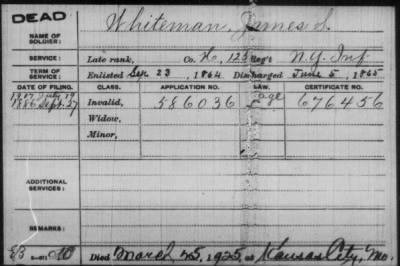 DEAD
NAME OF SOLDIER: Whiteman, James S.
SERVICE: Late rank, Co. H, 123 Reg't N.Y. Inf
TERM OF SERVICE: Enlisted Sep. 23, 1864, Discharged June 5, 1865
DATE OF FILING. CLASS. APPLICATION NO. LAW. CERTIFICATE NO.
1907 July 19 age
1886 Sept. 27 Invalid, 586036 676456
Widow,
Minor,
ADDITIONAL SERVICES:
REMARKS:
Died March 25, 1925, at Kansas City, Mo.